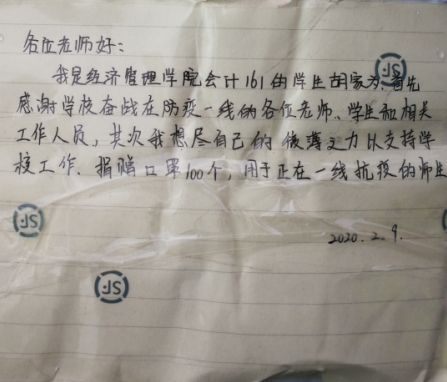 各位老师好：
我是经济管理学院会计161的学生胡家 首先
感谢学校奋战在防疫一线的各位老师、学生和相关
工作人员，其次我想尽自己的微薄之力以支持学
校工作、捐赠口罩100个，用于正在一线抗疫的师生
2020.2.9.
JS
JS
JS